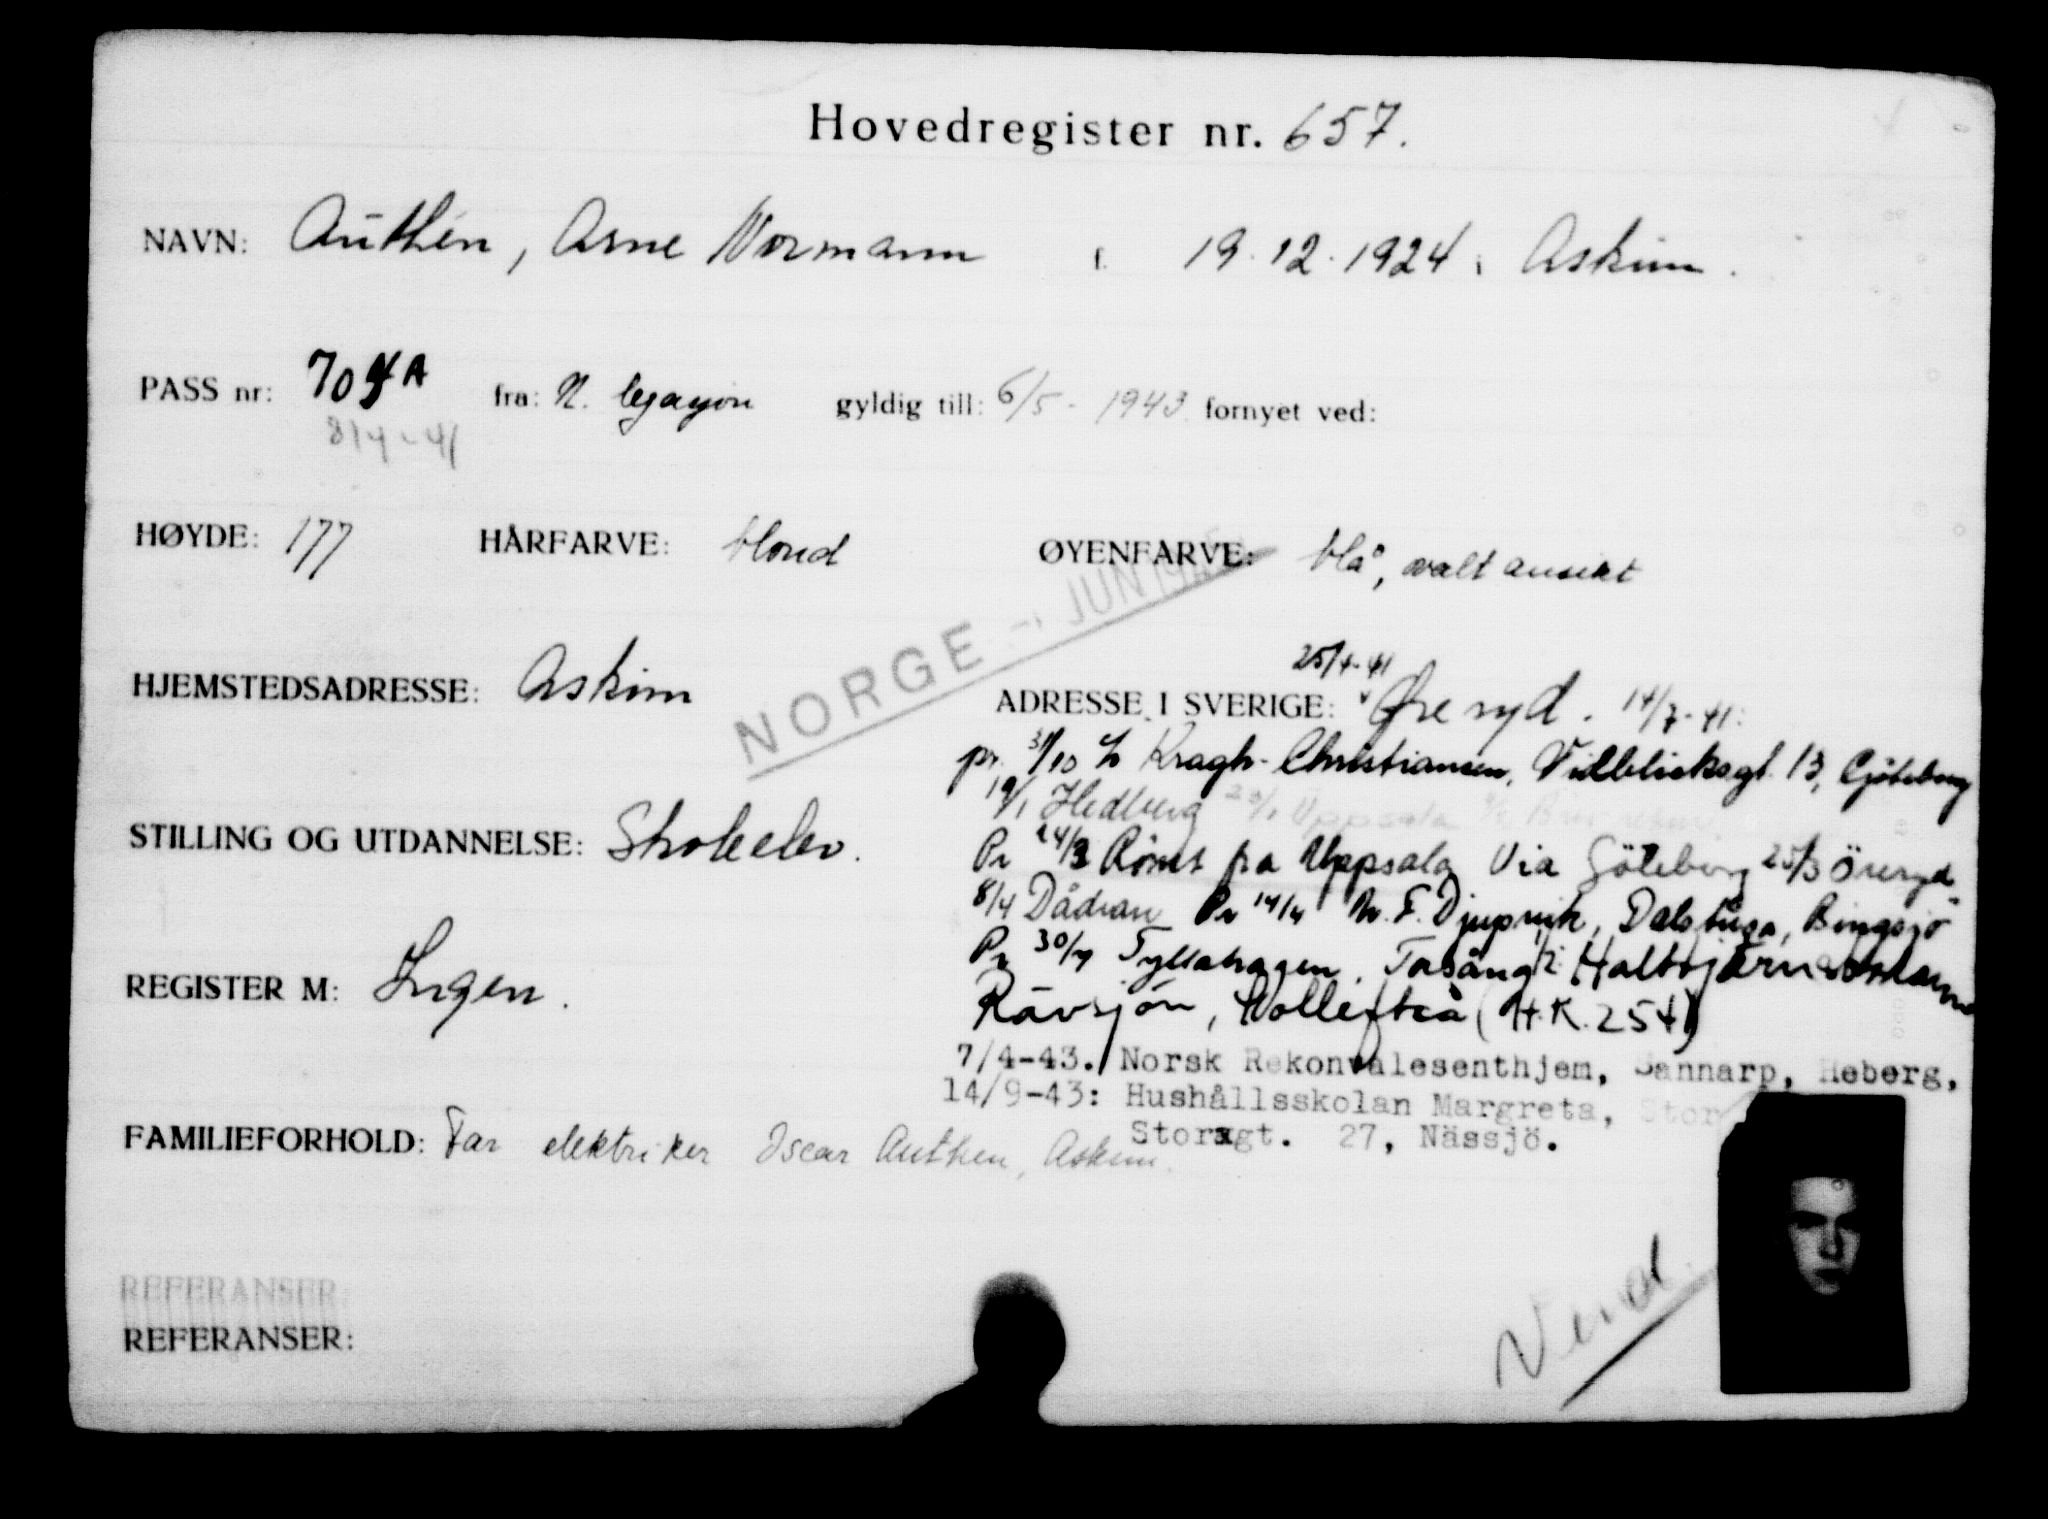 Hovedregister nr. 657.
NAVN: Authén, Arne Normann f. 19.12.1924 i Askim.
PASS nr: 704A fra: N. legasjon gyldig till: 6/5 - 1943 fornyet ved:
8/4-41
HØYDE: 177 HÅRFARVE: blond ØYENFARVE: blå, ovalt ansikt
NORGE JUN 194
25/4-41
HJEMSTEDSADRESSE: Askim ADRESSE I SVERIGE: Øreryd. 14/7-41:
pr. 31/10 Kragh-Christiansen, Vidblicksgt. 13, Gjøteborg
19/1 Hedberg Uppsala
STILLING OG UTDANNELSE: Skoleelev.
Pr 24/3 fra Uppsala Via Göteborg 25/3 Öreryd
8/4 Dådran Pr 14/4 Djupvik, Dalstuga, Bingsjö
Pr 30/4 Tyllahagen, Torsång
REGISTER M: Ingen.
Rävsjön, (H.K. 254)
7/4-43. Norsk Rekonvalesenthjem, Sannarp, Heberg.
14/9-43: Hushållsskolan Margreta, Stor
FAMILIEFORHOLD: Far elektriker Oscar Authen, Askim.
Storgt. 27, Nässjö.
REFERANSER:
REFERANSER:
Vend